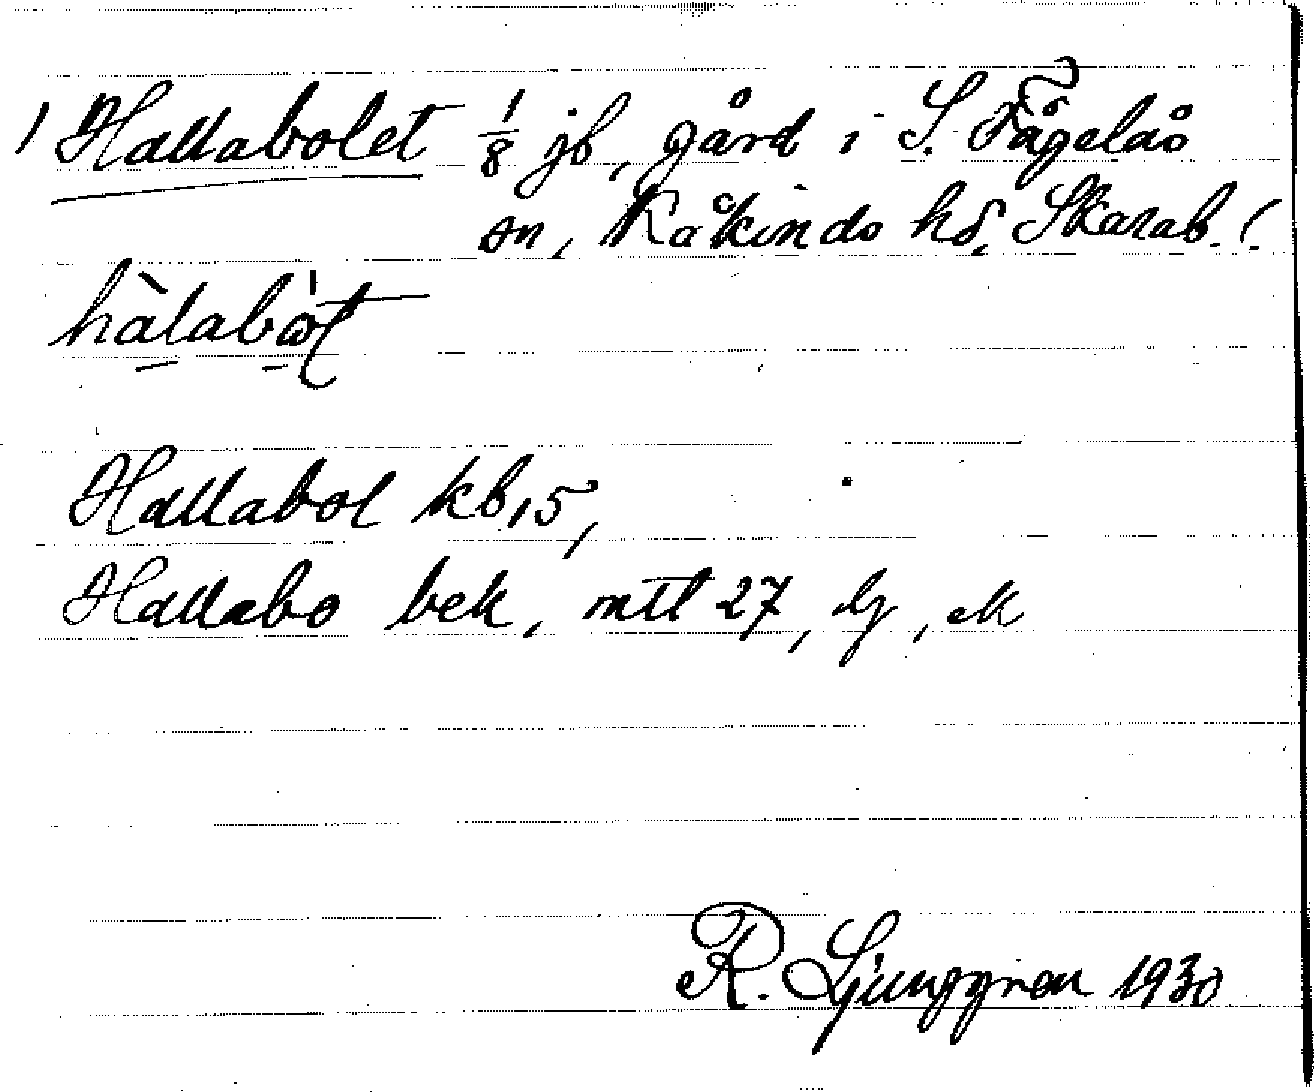 1 Hallabolet 1/8 jb, gård i S. Fågelås
sn, Kåkinds hd, Skarab. l.
hàlabòt
Hallabol kb, 15,
Hallabo bek, mtl 27, lg, ek
R. Ljunggren 1930